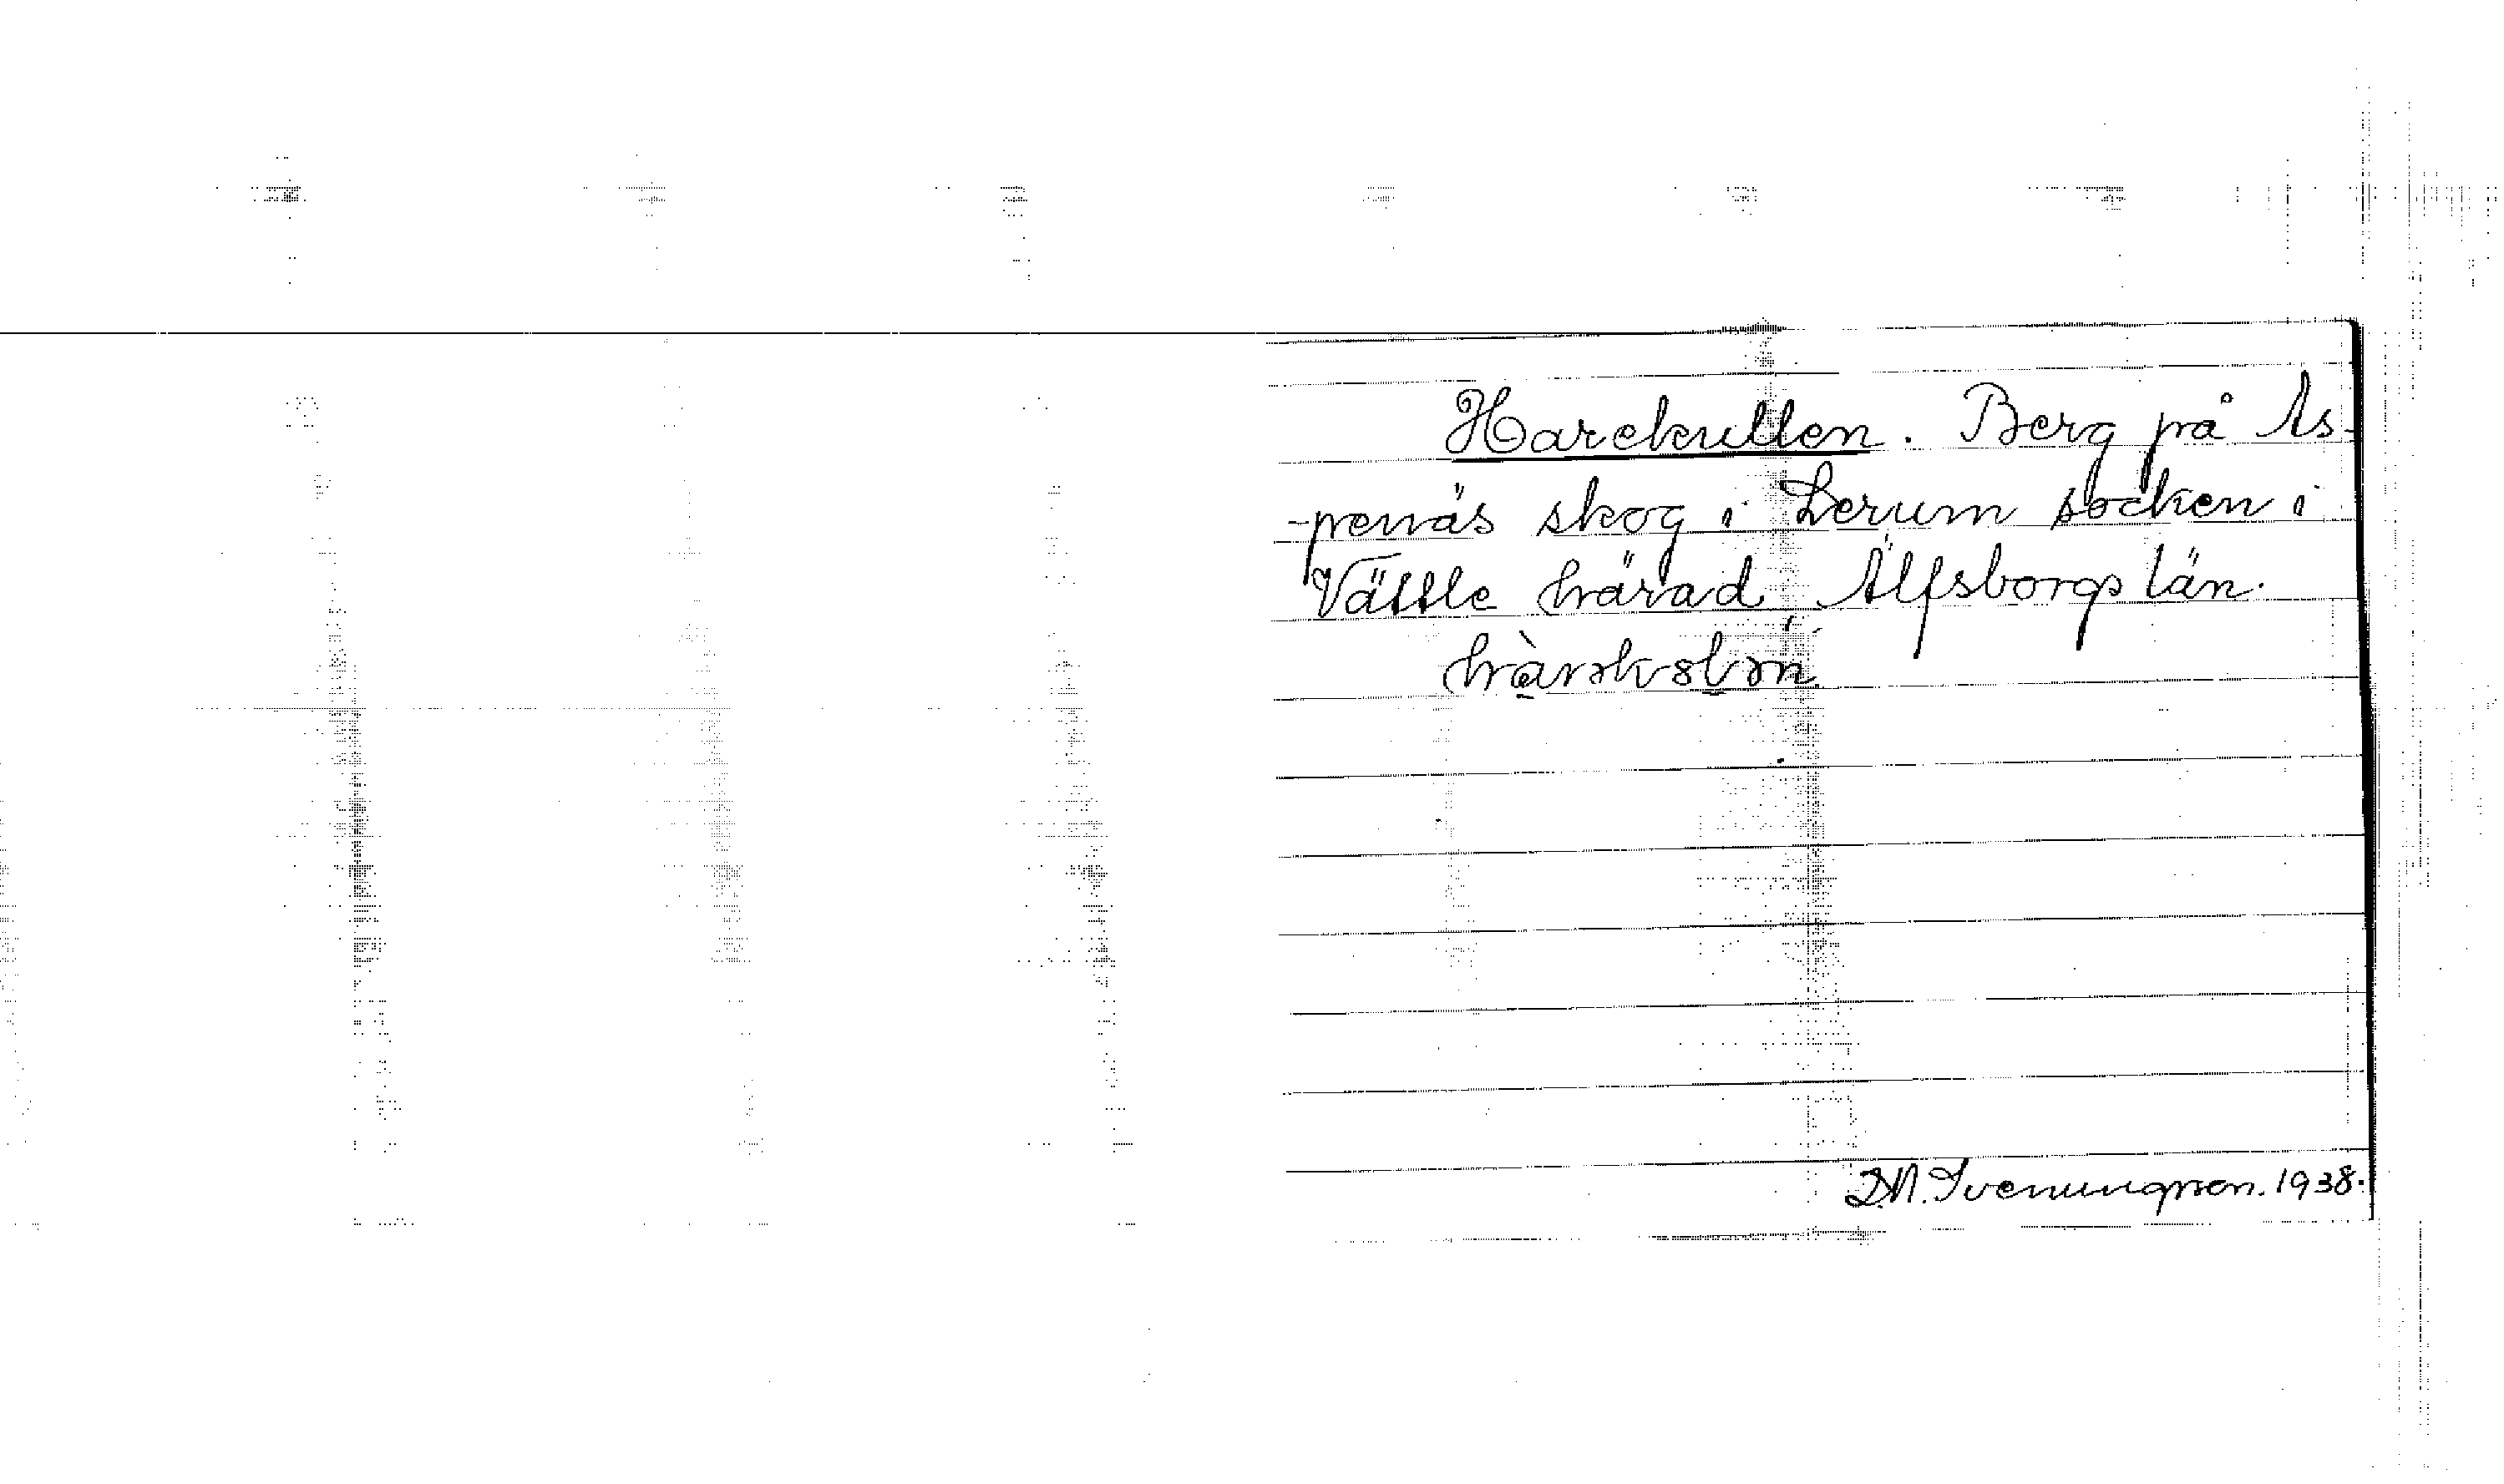 Harekullen. Berg på As-
-penäs skog i Lerum socken i
Vättle härad Älfsborgs län.
D.N. Svenungsson. 1938.